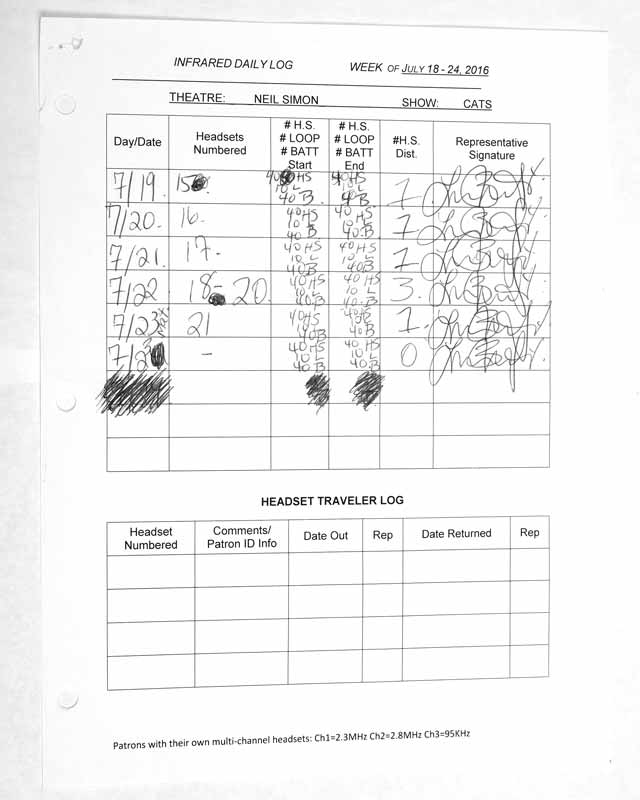 INFRARED DAILY LOG WEEK OF JULY 18 - 24, 2016
THEATRE: NEIL SIMON SHOW: CATS
Day/Date Headsets Numbered # H.S. # LOOP # BATT Start # H.S. # LOOP # BATT End #H.S. Dist. Representative Signature
7/19 15 40 HS 10 L 40 B 40 HS 10 L 40 B 1
7/20. 16. 40 HS 10 L 40 B 40 HS 10 L 40 B 1
7/21. 17. 40 HS 10 L 40 B 40 HS 10 L 40 B 1
7/22 18 - 20. 40 HS 10 L 40 B 40 HS 10 L 40 B 3.
7/23 21 40 HS 10 L 40 B 40 HS 10 L 40 B 1.
7/23 - 40 HS 10 L 40 B 40 HS 10 L 40 B 0
HEADSET TRAVELER LOG
Headset Numbered Comments/ Patron ID Info Date Out Rep Date Returned Rep
Patrons with their own multi-channel headsets: Ch1=2.3MHz Ch2=2.8MHz Ch3=95KHz